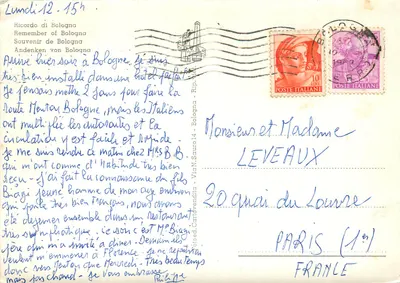 Lundi 12 - 15h
Ricordo di Bologna
Remember of Bologna
Souvenir de Bologna
Andenken von Bologna
hier soir à Bologne, je suis
très bien installé dans un hôtel parfait
je pensais mettre 2 jours pour faire la
route Bologne, mais les Italiens
ont multiplié les autoroutes et la
circulation y est facile et rapide.
je me suis rendu ce matin chez Mrs B.B
qui m'ont comme d'habitude très bien
reçu - j'ai fait la connaissance du fils
Biagi jeune homme de
qui parle très bien français, nous avons
été déjeuner ensemble dans un restaurant
très sympathique. Ce soir c'est Mr Biagi
qui m'a invité à dîner. Demain ils
veulent m'emmener à Florence. je ne repartirai
donc vers que Mercredi. Très beau temps
mais pas chaud - je vous embrasse
POSTE ITALIANE
POSTE ITALIANE
BOLOGNA
Monsieur et Madame
LEVEAUX
20 quai du Louvre
PARIS (1er)
FRANCE